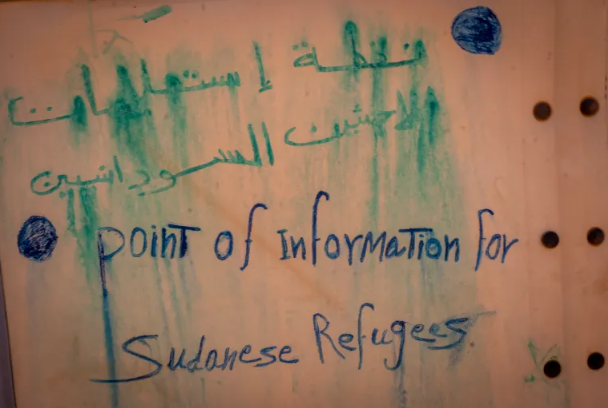 نقطة إستعلامات
الاجئين السودانيين
point of Information for
Sudanese Refugees